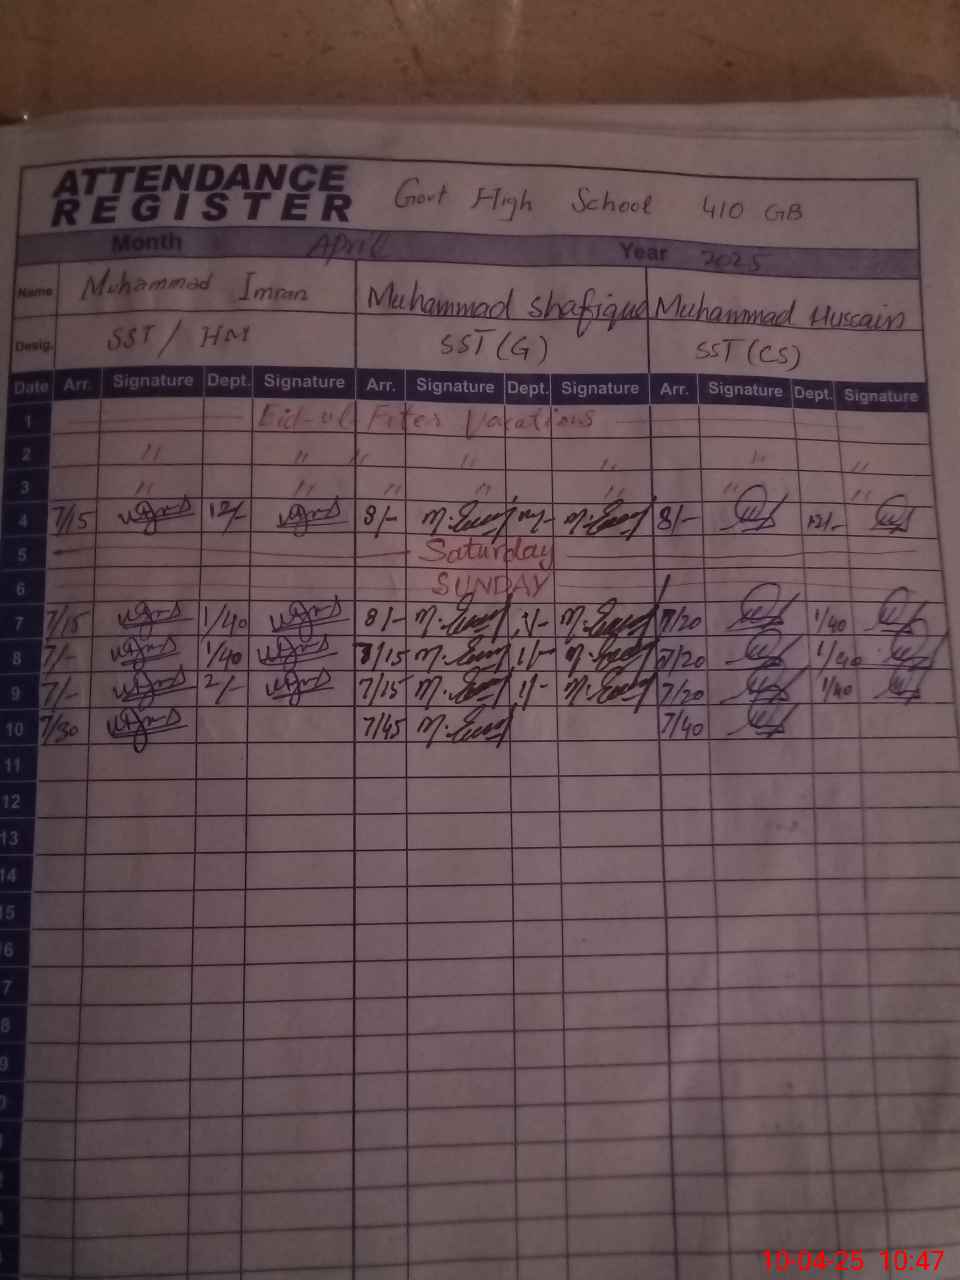 ATTENDANCE REGISTER Govt High School 410 GB
Month April Year 2025
Name Muhammad Imran Muhammad Shafique Muhammad Hussain
Desig. SST / HM SST (G) SST (CS)
Date Arr. Signature Dept. Signature Arr. Signature Dept. Signature Arr. Signature Dept. Signature
1 Eid-ul-Fiter Vacations
2 " " " " " " "
3 " " " " " " "
4 7/15 12/- 8/- 8/- 12/-
5 Saturday
6 SUNDAY
7 7/15 1/40 8/- 1/- 7/20 1/40
8 7/- 1/40 7/15 1/- 7/20 1/40
9 7/- 2/- 7/15 1/- 7/20 1/40
10 7/30 7/45 7/40
11
12
13
14
15
6
7
8
9
10-04-25 10:47